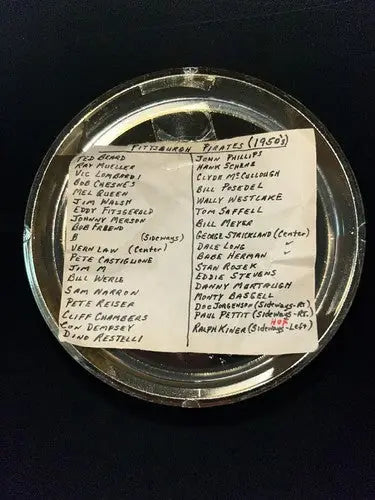 PITTSBURGH PIRATES (1950's)
TED BEARD
RAY MUELLER
VIC LOMBARDI
BOB CHESNES
MEL QUEEN
JIM WALSH
EDDY FITSGERALD
JOHNNY MERSON
BOB FRIEND
B (Sideways)
VERN LAW (Center)
PETE CASTIGLIONE
JIM M
BILL WERLE
SAM NARRON
PETE REISER
CLIFF CHAMBERS
CON DEMPSEY
DINO RESTELLI
JOHN PHILLIPS
HANK SCHENZ
CLYDE MCCULLOUGH
BILL POSEDEL
WALLY WESTLAKE
TOM SAFFELL
BILL MEYER
GEORGE STRICKLAND (Center)
DALE LONG ✓
BABE HERMAN ✓
STAN ROJEK
EDDIE STEVENS
DANNY MURTAUGH
MONTY BASGELL
DOC JORGENSON (Sideways-Rt.)
PAUL PETTIT (Sideways-Rt.
HOF
RALPH KINER (Sideways-Left)